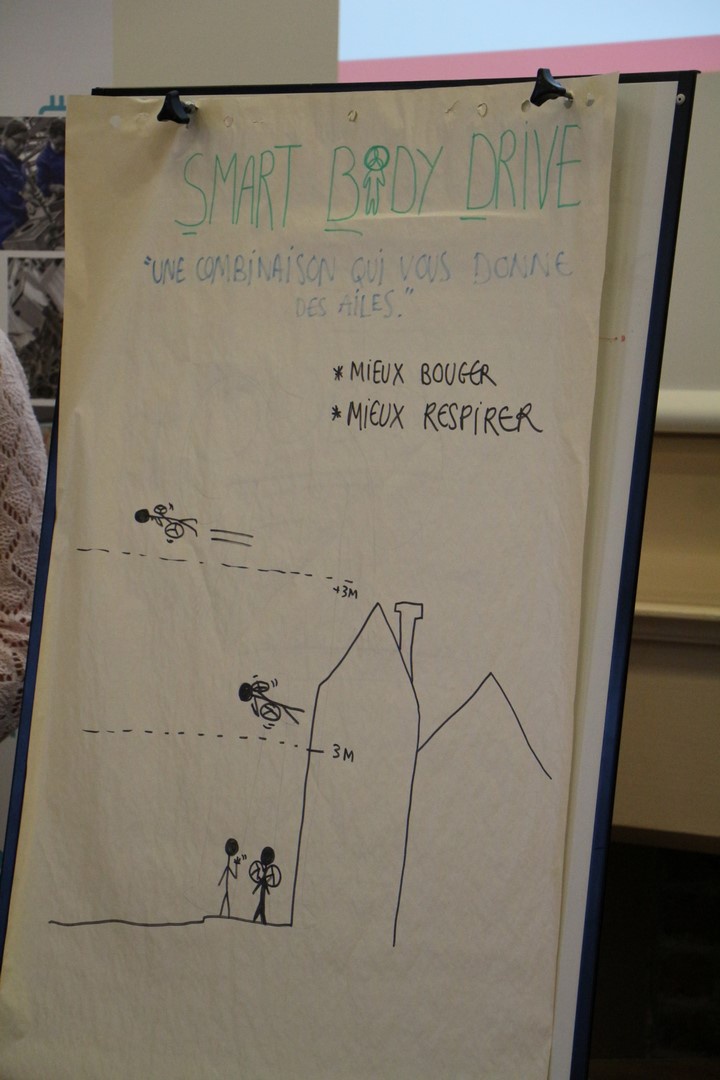 SMART BODY DRIVE
"UNE COMBINAISON QUI VOUS DONNE
DES AILES."
* MIEUX BOUGER
* MIEUX RESPIRER
+3M
3M